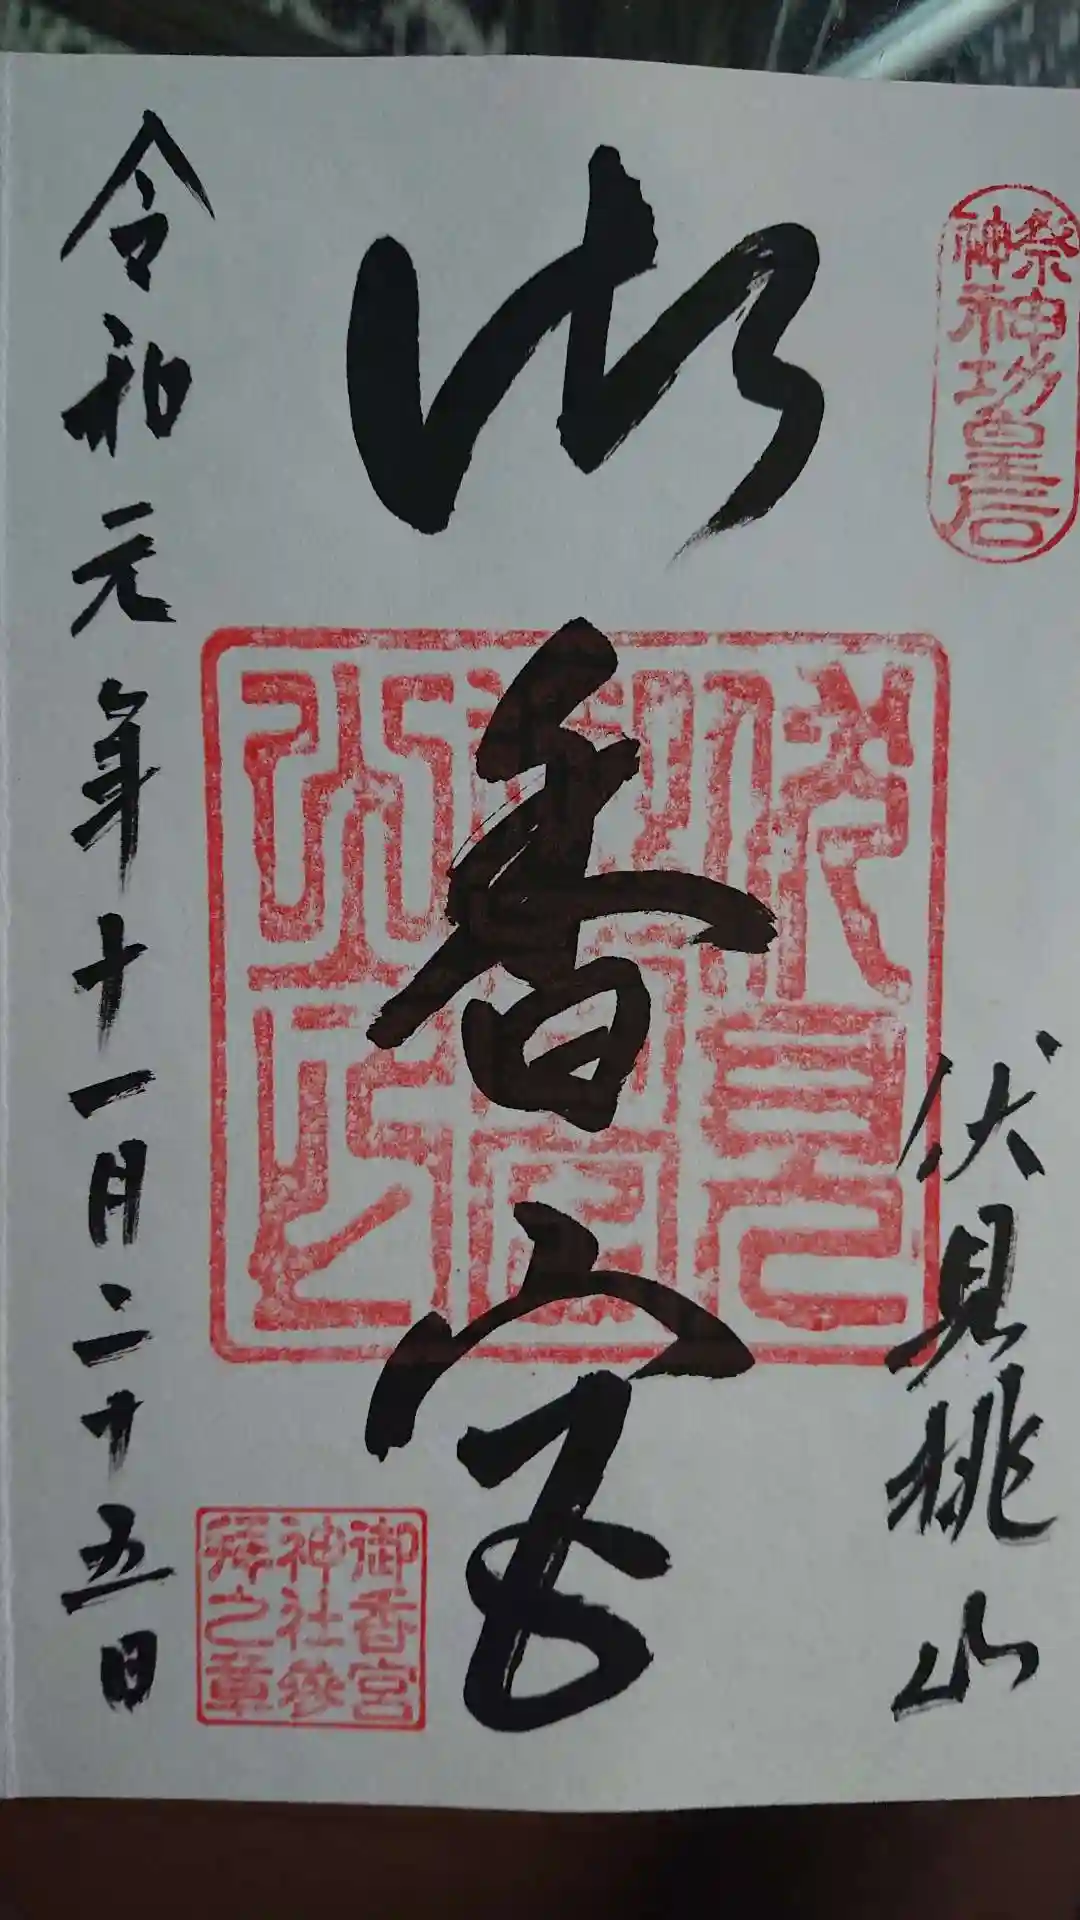 祭神
神功皇后
伏見桃山
御香宮
御香宮
神社参
拜之章
令和元年十一月二十五日